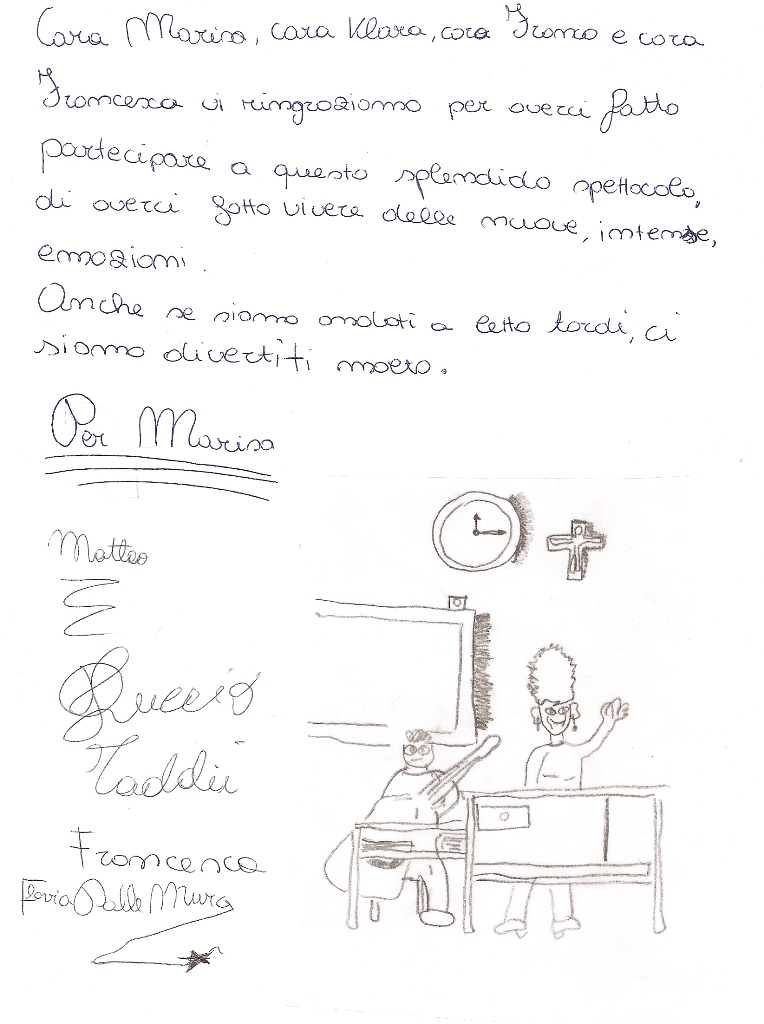 Cara Marisa, cara Klara, cara Franco e cara
Francesca vi ringraziamo per averci fatto
partecipare a questo splendido spettacolo,
di averci fatto vivere delle nuove, intense,
emozioni.
Anche se siamo andati a letto tardi, ci
siamo divertiti molto.
Per Marisa
Matteo
Taddei
Francesca
Flavia Dalle Mura